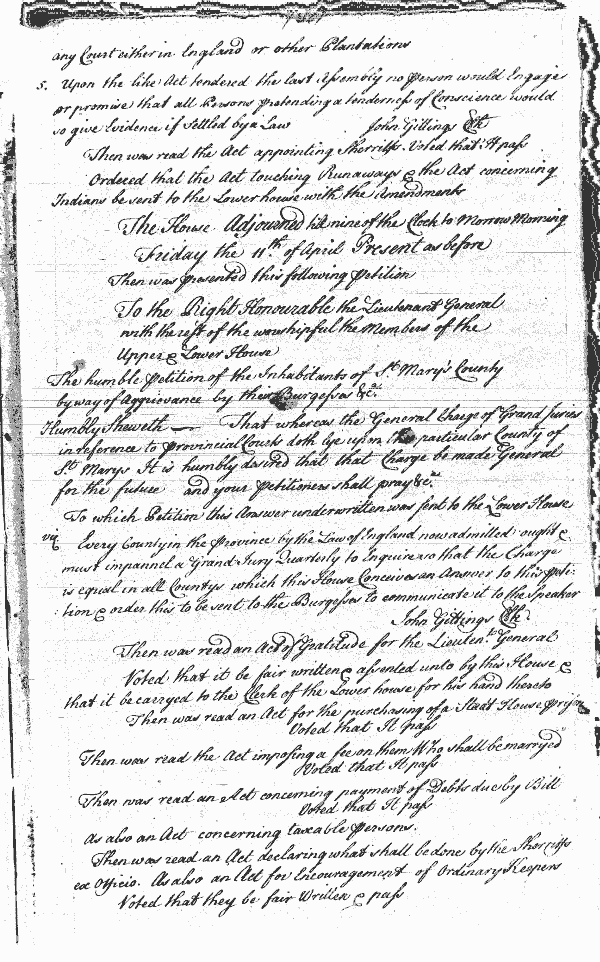 any Court either in England or other Plantations
5. Upon the like Act tendered the last Assembly no person would Engage
or promise that all Persons pretending a tenderness of Conscience would
so give Evidence if Settled by a Law John Gittings Clk
Then was read the Act appointing Sherriffs. Voted that It pass
Ordered that the Act touching Runaways & the Act concerning
Indians be sent to the Lower house with the Amendments
The House Adjourned till nine of the Clock to Morrow Morning
Friday the 11th of April Present as before
Then was presented this following Petition
To the Right Honourable the Lieutenant General
with the rest of the worshipful the Members of the
Upper & Lower House
The humble Petition of the Inhabitants of St Mary's County
by way of Aggrievance by their Burgesses &ca
Humbly Sheweth — That whereas the General Charge of Grand Juries
in reference to Provincial Courts doth lye upon the particular County of
St Marys It is humbly desired that that Charge be made General
for the future and your Petitioners shall pray &ca
To which Petition this Answer underwritten was sent to the Lower House
vizt Every County in the Province by the Law of England now admitted ought &
must impannel a Grand Jury Quarterly to Enquire so that the Charge
is equal in all Countys which this House Conceives an Answer to this peti-
tion & order this to be sent to the Burgesses to communicate it to the Speaker
John Gittings Clk
Then was read an Act of Gratitude for the Lieutent General
Voted that it be fair written & assented unto by this House &
that it be carryed to the Clerk of the Lower house for his hand thereto
Then was read an Act for the purchasing of a State House
Voted that It pass
Then was read the Act imposing a fee on them Who shall be marryed
Voted that It pass
Then was read an Act concerning payment of Debts due by Bill
Voted that It pass
As also an Act concerning taxable Persons.
Then was read an Act declaring what shall be done by the Sherriffs
ex Officio. As also an Act for Encouragement of Ordinary Keepers
Voted that they be fair Written & pass